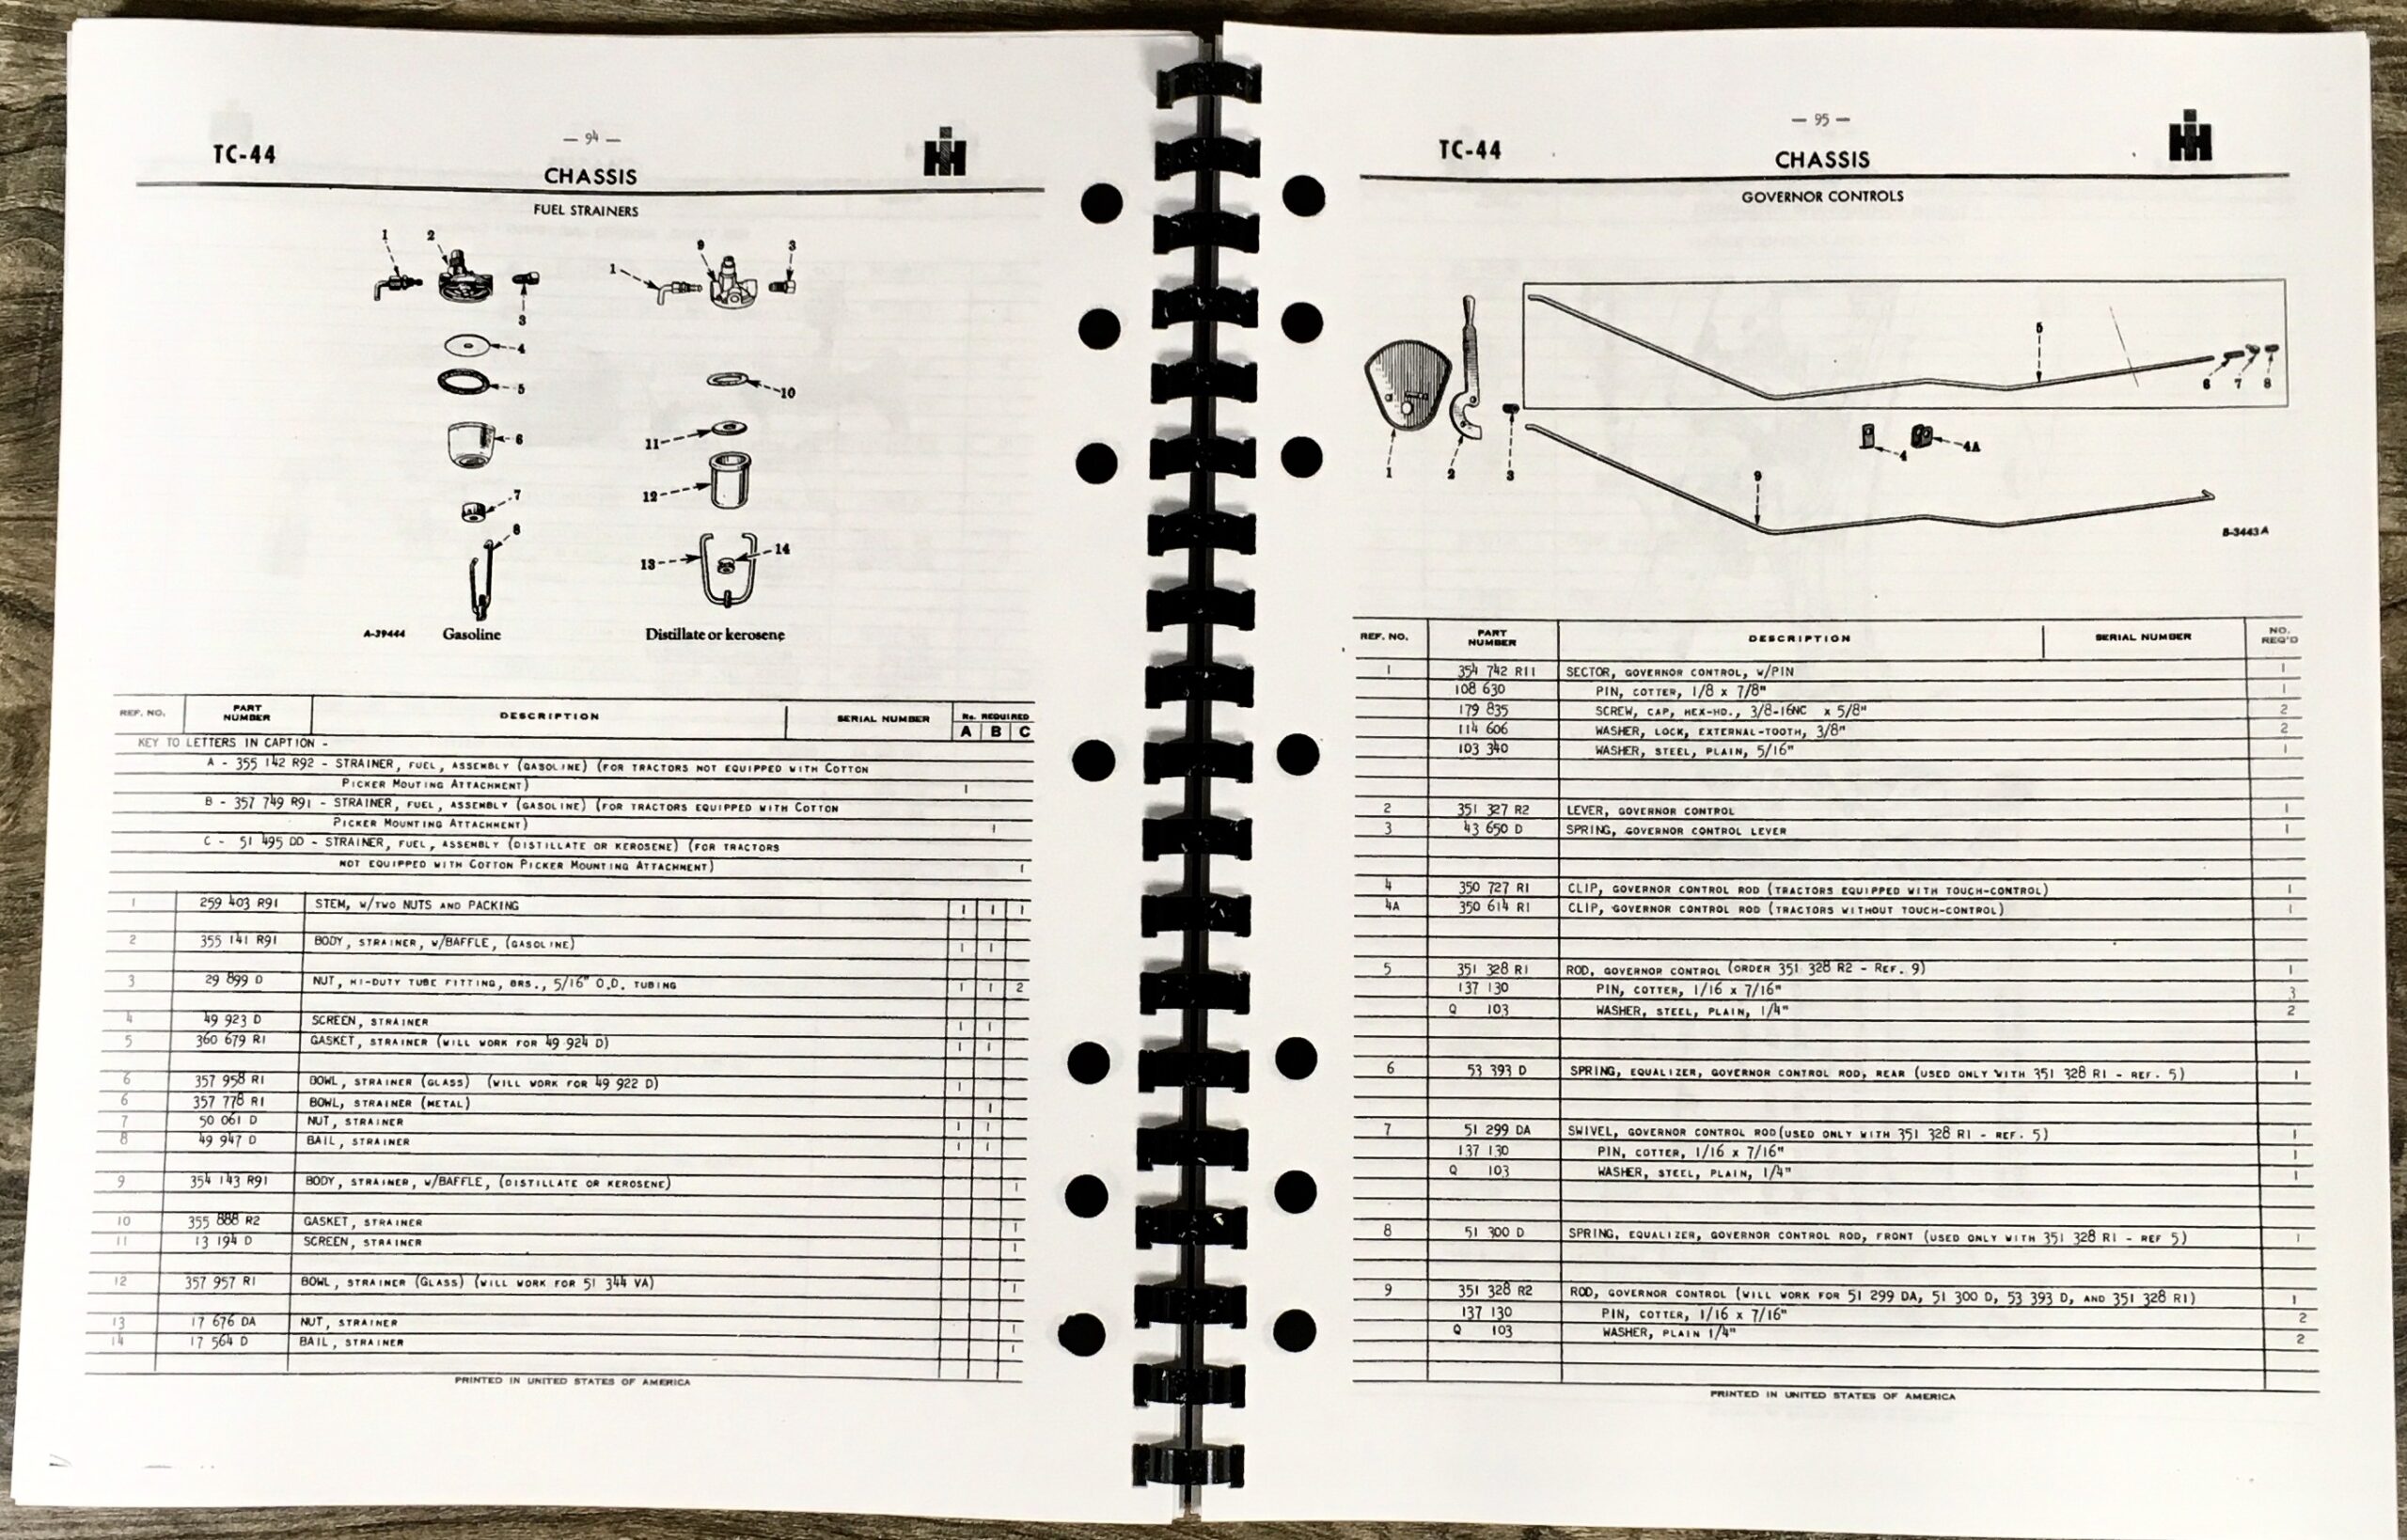 — 94 —
TC-44
CHASSIS
FUEL STRAINERS
1 2 3 4 5 6 7 8
1 9 3 10 11 12 13 14
A-39444 Gasoline Distillate or kerosene
REF. NO. PART NUMBER DESCRIPTION SERIAL NUMBER No. REQUIRED
A B C
KEY TO LETTERS IN CAPTION -
A - 355 142 R92 - STRAINER, FUEL, ASSEMBLY (GASOLINE) (FOR TRACTORS NOT EQUIPPED WITH COTTON
PICKER MOUTING ATTACHMENT) 1
B - 357 749 R91 - STRAINER, FUEL, ASSEMBLY (GASOLINE) (FOR TRACTORS EQUIPPED WITH COTTON
PICKER MOUNTING ATTACHMENT) 1
C - 51 495 DD - STRAINER, FUEL, ASSEMBLY (DISTILLATE OR KEROSENE) (FOR TRACTORS
NOT EQUIPPED WITH COTTON PICKER MOUNTING ATTACHMENT) 1
1 259 403 R91 STEM, W/TWO NUTS AND PACKING 1 1 1
2 355 141 R91 BODY, STRAINER, W/BAFFLE, (GASOLINE) 1 1
3 29 899 D NUT, HI-DUTY TUBE FITTING, BRS., 5/16" O.D. TUBING 1 1 2
4 49 923 D SCREEN, STRAINER 1 1
5 360 679 R1 GASKET, STRAINER (WILL WORK FOR 49 924 D) 1 1
6 357 958 R1 BOWL, STRAINER (GLASS) (WILL WORK FOR 49 922 D) 1
6 357 778 R1 BOWL, STRAINER (METAL) 1
7 50 061 D NUT, STRAINER 1 1
8 49 947 D BAIL, STRAINER 1 1
9 354 143 R91 BODY, STRAINER, W/BAFFLE, (DISTILLATE OR KEROSENE) 1
10 355 888 R2 GASKET, STRAINER 1
11 13 194 D SCREEN, STRAINER 1
12 357 957 R1 BOWL, STRAINER (GLASS) (WILL WORK FOR 51 344 VA) 1
13 17 676 DA NUT, STRAINER 1
14 17 564 D BAIL, STRAINER 1
PRINTED IN UNITED STATES OF AMERICA
— 95 —
TC-44
CHASSIS
GOVERNOR CONTROLS
1 2 3 4 4A 5 6 7 8 9
B-3443A
REF. NO. PART NUMBER DESCRIPTION SERIAL NUMBER NO. REQ'D
1 354 742 R11 SECTOR, GOVERNOR CONTROL, W/PIN 1
108 630 PIN, COTTER, 1/8 x 7/8" 1
179 835 SCREW, CAP, HEX-HD., 3/8-16NC x 5/8" 2
114 606 WASHER, LOCK, EXTERNAL-TOOTH, 3/8" 2
103 340 WASHER, STEEL, PLAIN, 5/16" 1
2 351 327 R2 LEVER, GOVERNOR CONTROL 1
3 43 650 D SPRING, GOVERNOR CONTROL LEVER 1
4 350 727 R1 CLIP, GOVERNOR CONTROL ROD (TRACTORS EQUIPPED WITH TOUCH-CONTROL) 1
4A 350 614 R1 CLIP, GOVERNOR CONTROL ROD (TRACTORS WITHOUT TOUCH-CONTROL) 1
5 351 328 R1 ROD, GOVERNOR CONTROL (ORDER 351 328 R2 - REF. 9) 1
137 130 PIN, COTTER, 1/16 x 7/16" 3
Q 103 WASHER, STEEL, PLAIN, 1/4" 2
6 53 393 D SPRING, EQUALIZER, GOVERNOR CONTROL ROD, REAR (USED ONLY WITH 351 328 R1 - REF. 5) 1
7 51 299 DA SWIVEL, GOVERNOR CONTROL ROD (USED ONLY WITH 351 328 R1 - REF. 5) 1
137 130 PIN, COTTER, 1/16 x 7/16" 1
Q 103 WASHER, STEEL, PLAIN, 1/4" 1
8 51 300 D SPRING, EQUALIZER, GOVERNOR CONTROL ROD, FRONT (USED ONLY WITH 351 328 R1 - REF 5) 1
9 351 328 R2 ROD, GOVERNOR CONTROL (WILL WORK FOR 51 299 DA, 51 300 D, 53 393 D, AND 351 328 R1) 1
137 130 PIN, COTTER, 1/16 x 7/16" 2
Q 103 WASHER, PLAIN 1/4" 2
PRINTED IN UNITED STATES OF AMERICA